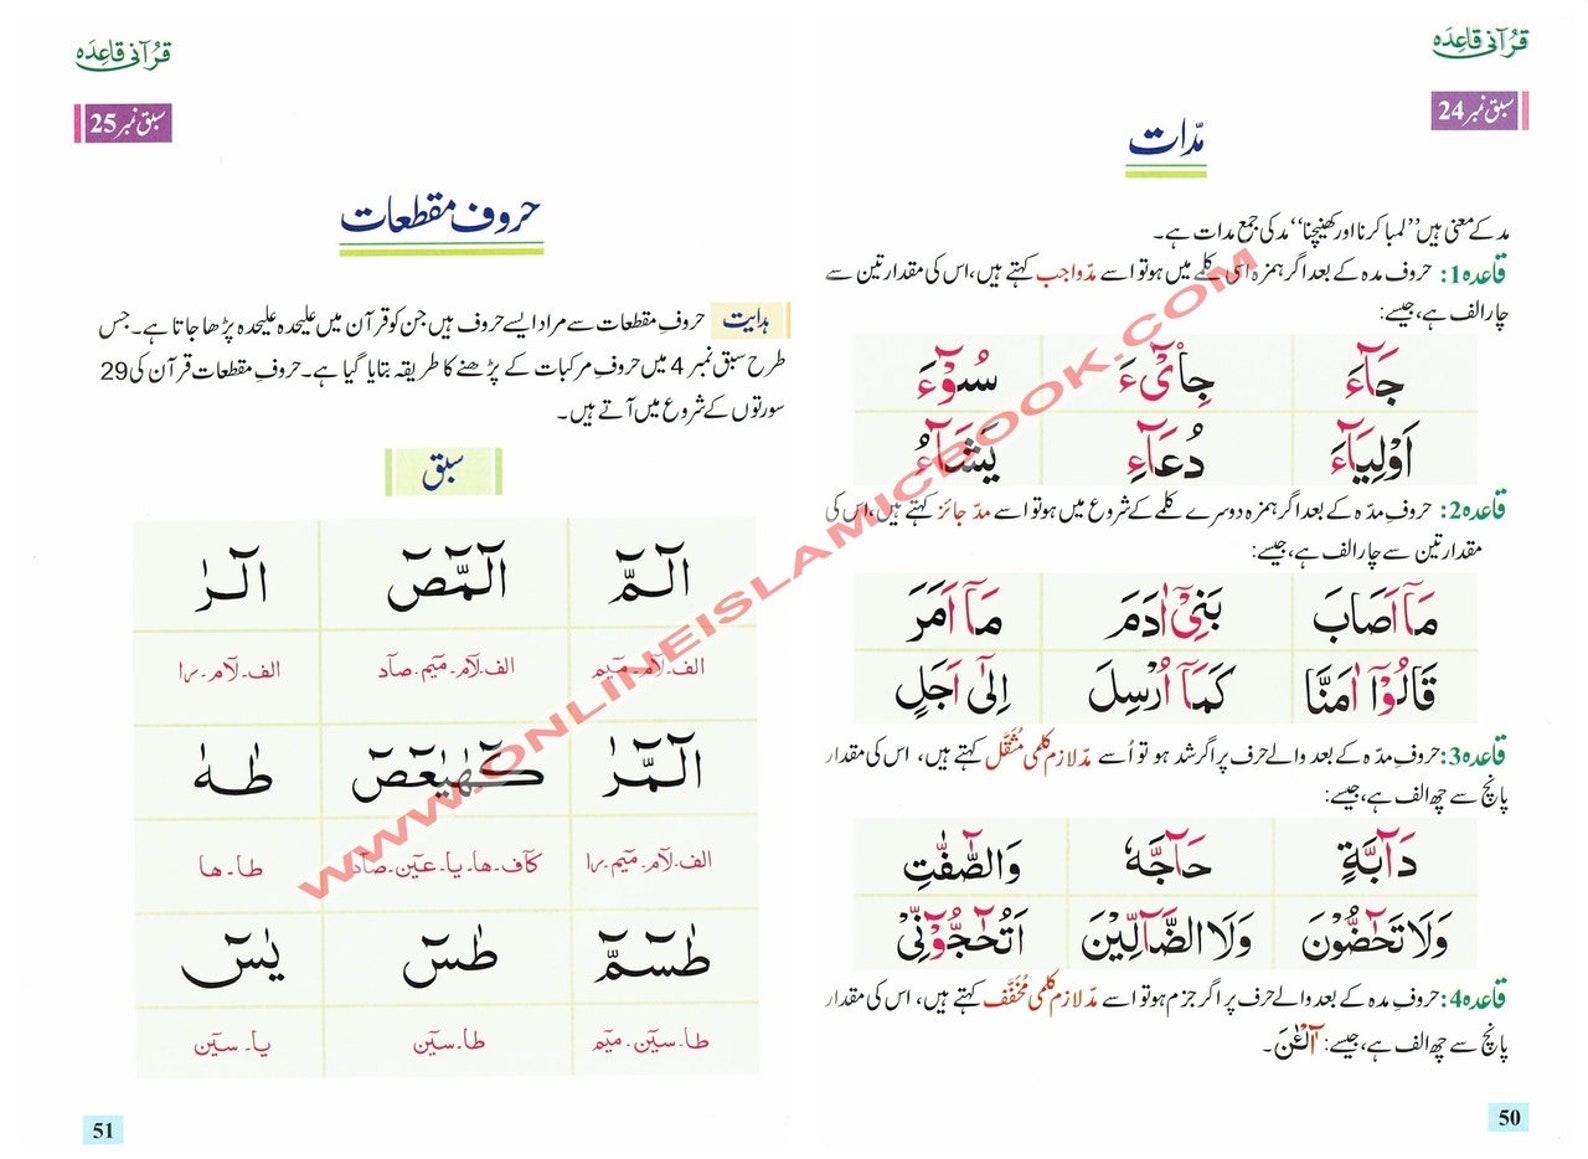 قرآنی قاعدہ
سبق نمبر 24
مدّات
مد کے معنی ہیں ”لمبا کرنا اور کھینچنا“ مد کی جمع مدات ہے۔
قاعدہ 1: حروف مدہ کے بعد اگر ہمزہ اسی کلمے میں ہو تو اسے مدّ واجب کہتے ہیں، اس کی مقدار تین سے
چار الف ہے، جیسے:
جَآءَ جِاْیْٓءَ سُوْٓءَ
اَوْلِیَآءَ دُعَآءِ یَشَآءُ
قاعدہ 2: حروفِ مدّہ کے بعد اگر ہمزہ دوسرے کلمے کے شروع میں ہو تو اسے مدّ جائز کہتے ہیں، اس کی
مقدار تین سے چار الف ہے، جیسے:
مَآ اَصَابَ بَنِیْٓ اٰدَمَ مَآ اَمَرَ
قَالُوْٓا اٰمَنَّا کَمَآ اُرْسِلَ اِلٰٓی اَجَلٍ
قاعدہ 3: حروفِ مدّہ کے بعد والے حرف پر اگر شد ہو تو اُسے مدّ لازم کلمی مُثَقَّل کہتے ہیں، اس کی مقدار
پانچ سے چھ الف ہے، جیسے:
دَآبَّةٍ حَآجَّهٗ وَالصّٰٓفّٰتِ
وَلَا تَحٰٓضُّوْنَ وَلَا الضَّآلِّیْنَ اَتُحَآجُّوْٓنِّیْ
قاعدہ 4: حروفِ مدہ کے بعد والے حرف پر اگر جزم ہو تو اسے مدّ لازم کلمی مُخَفَّف کہتے ہیں، اس کی مقدار
پانچ سے چھ الف ہے، جیسے: آٰلْـٰٔنَ۔
50
قرآنی قاعدہ
سبق نمبر 25
حروف مقطعات
ہدایت حروفِ مقطعات سے مراد ایسے حروف ہیں جن کو قرآن میں علیحدہ علیحدہ پڑھا جاتا ہے۔ جس
طرح سبق نمبر 4 میں حروفِ مرکبات کے پڑھنے کا طریقہ بتایا گیا ہے۔ حروفِ مقطعات قرآن کی 29
سورتوں کے شروع میں آتے ہیں۔
سبق
الٓـمّٓ الٓمّٓصٓ الٓـرٰ
الف۔لآم۔مّیٓم الف۔لآم۔میٓم۔صآد الف۔لآم۔را
الٓـمّٓرٰ کٓهٰیٰعٓصٓ طٰـهٰ
الف۔لآم۔میٓم۔را کآف۔ها۔یا۔عیٓن۔صآد طا۔ها
طٰسٓمّٓ طٰسٓ یٰسٓ
طا۔سیٓن۔میٓم طا۔سیٓن یا۔سیٓن
51
WWW.ONLINEISLAMICBOOK.COM